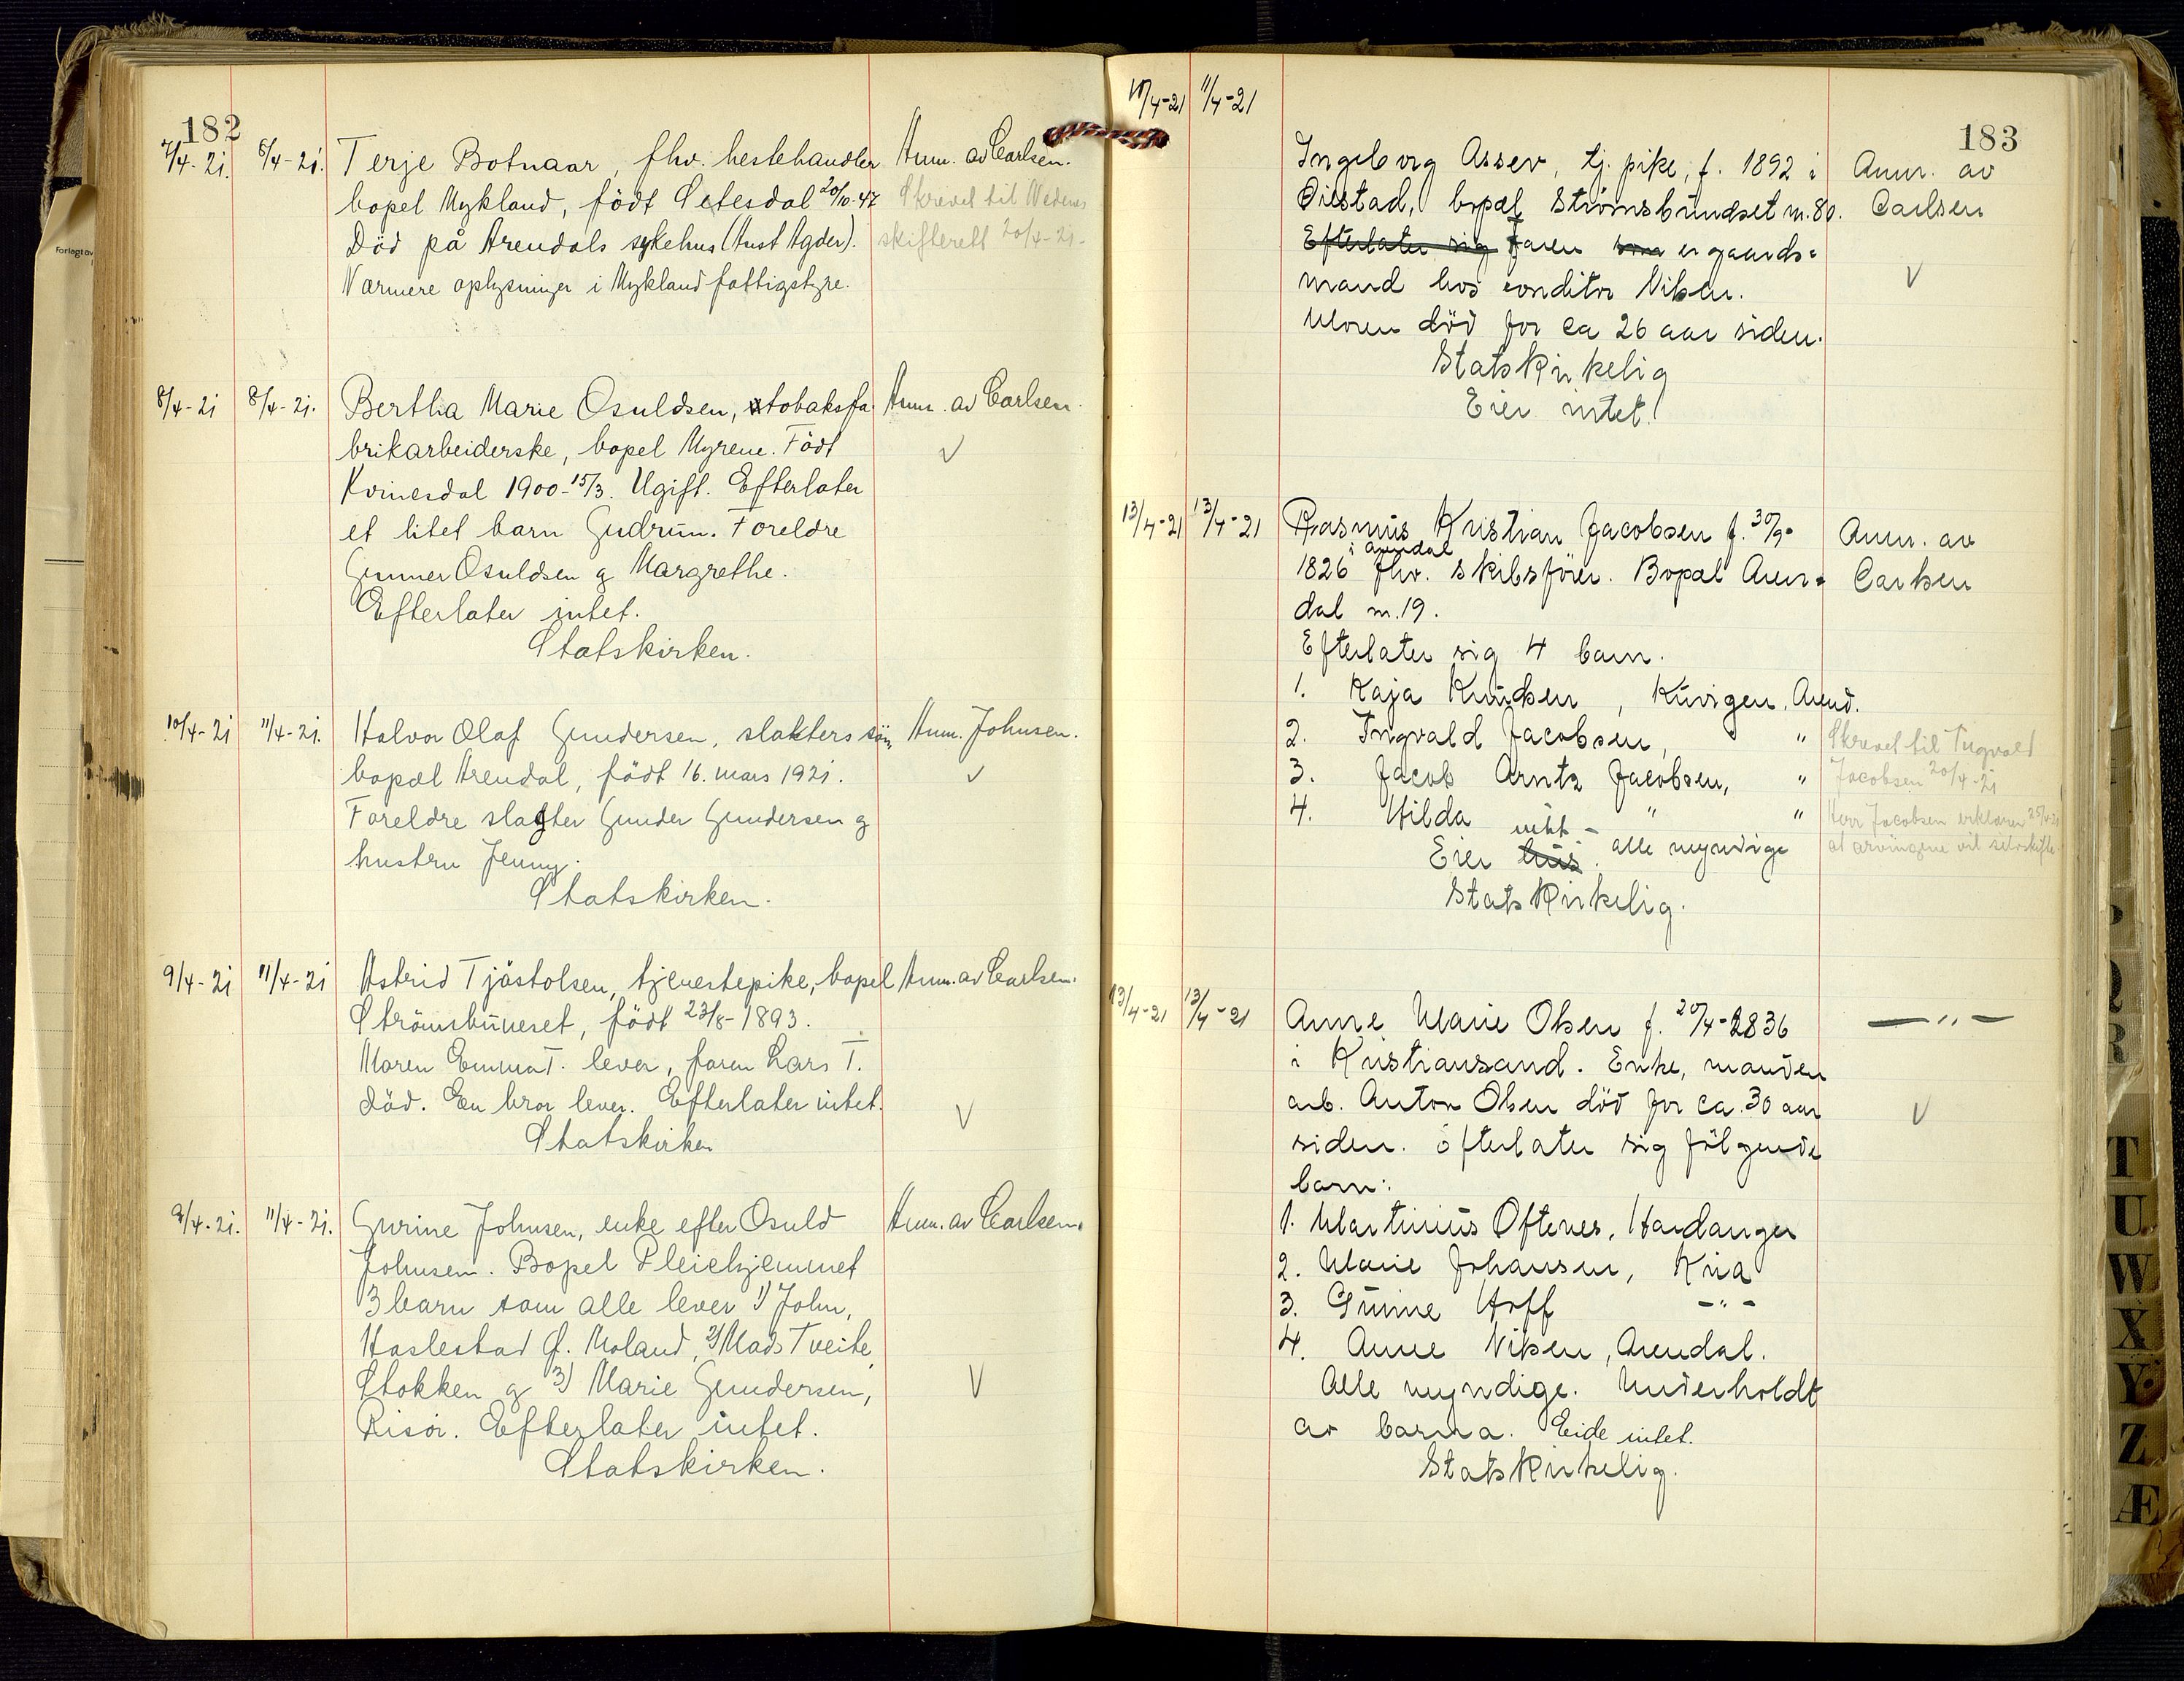 182
7/4-21. 8/4-21. Terje Botnaar, fhv. hestehandler Anm. av Carlsen.
bopel Mykland, født Setesdal 20/10-47 Skrevet til Nedenes
Død på Arendals sykehus (Aust Agder). skifterett 20/4-21-
Nærmere oplysninger i Mykland fattigstyre.
8/4-21 8/4-21. Bertha Marie Osuldsen, tobaksfa Anm. av Carlsen.
brikarbeiderske, bopel Myrene. Født
Kvinesdal 1900-15/3. Ugift. Efterlater
et litet barn Gudrun. Foreldre
Gunner Osuldsen g Margrethe.
Efterlater intet.
Statskirken.
10/4-21 11/4-21. Halvor Olaf Gundersen, slakters søn, Anm. Johnsen.
bopæl Arendal, født 16. mars 1921.
Foreldre slagter Gunder Gundersen g
hustru Jenny.
Statskirken.
9/4-21 11/4-21 Astrid Tjøstolsen, tjenestepike, bopel Anm. av Carlsen.
Strømsbuneset, født 23/8-1893.
Moren Emma T. lever, faren Lars T.
død. En bror lever. Efterlater intet.
Statskirken
9/4-21. 11/4-21. Gurine Johnsen, enke efter Osuld Anm. av Carlsen.
Johnsen. Bopel Pleiehjemmet
3 barn som alle lever 1) John,
Haslestad Ø. Moland, 2) Mads Tveite,
Stokken g 3) Marie Gundersen,
Risør. Efterlater intet.
Statskirken.
183
11/4-21
Ingeborg Assev, tj. pike, f. 1892 i Anm. av
Øiestad, bopæl Strømsbundset m. 80. Carlsen
Efterlater sig Faren som er gaards-
mand hos conditor Nilsen.
Moren død for ca 26 aar siden.
Statskirkelig
Eier intet.
13/4-21 13/4-21 Rasmus Kristian Jacobsen f. 30/9- Anm. av
i Arendal
1826 fhv. skibsfører. Bopæl Aren- Carlsen
dal m. 19.
Efterlater sig 4 barn.
1. Kaja Knudsen, Kuvigen, Arend.
2. Ingvald Jacobsen, " Skrevet til Ingvald
3. Jacob Arntz Jacobsen, " Jacobsen 20/4-21
4. Hilda " " Herr Jacobsen erklærer 25/4-21
intet - alle myndige at arvingene vil selvskifte.
Eier hus.
Statskirkelig.
13/4-21 13/4-21 Anne Marie Olsen f. 20/4-1836 — " —
i Kristiansand. Enke, manden
arb. Anton Olsen død for ca. 30 aar
siden. Efterlater sig følgende
barn:
1. Martinius Oftenes, Hardanger
2. Marie Johansen, Kria
3. Gunine Hoff - " -
4. Anne Nilsen, Arendal.
Alle myndige. Underholdt
av barna. Eide intet.
Statskirkelig.
T
U
W
X
Y
Z
Æ